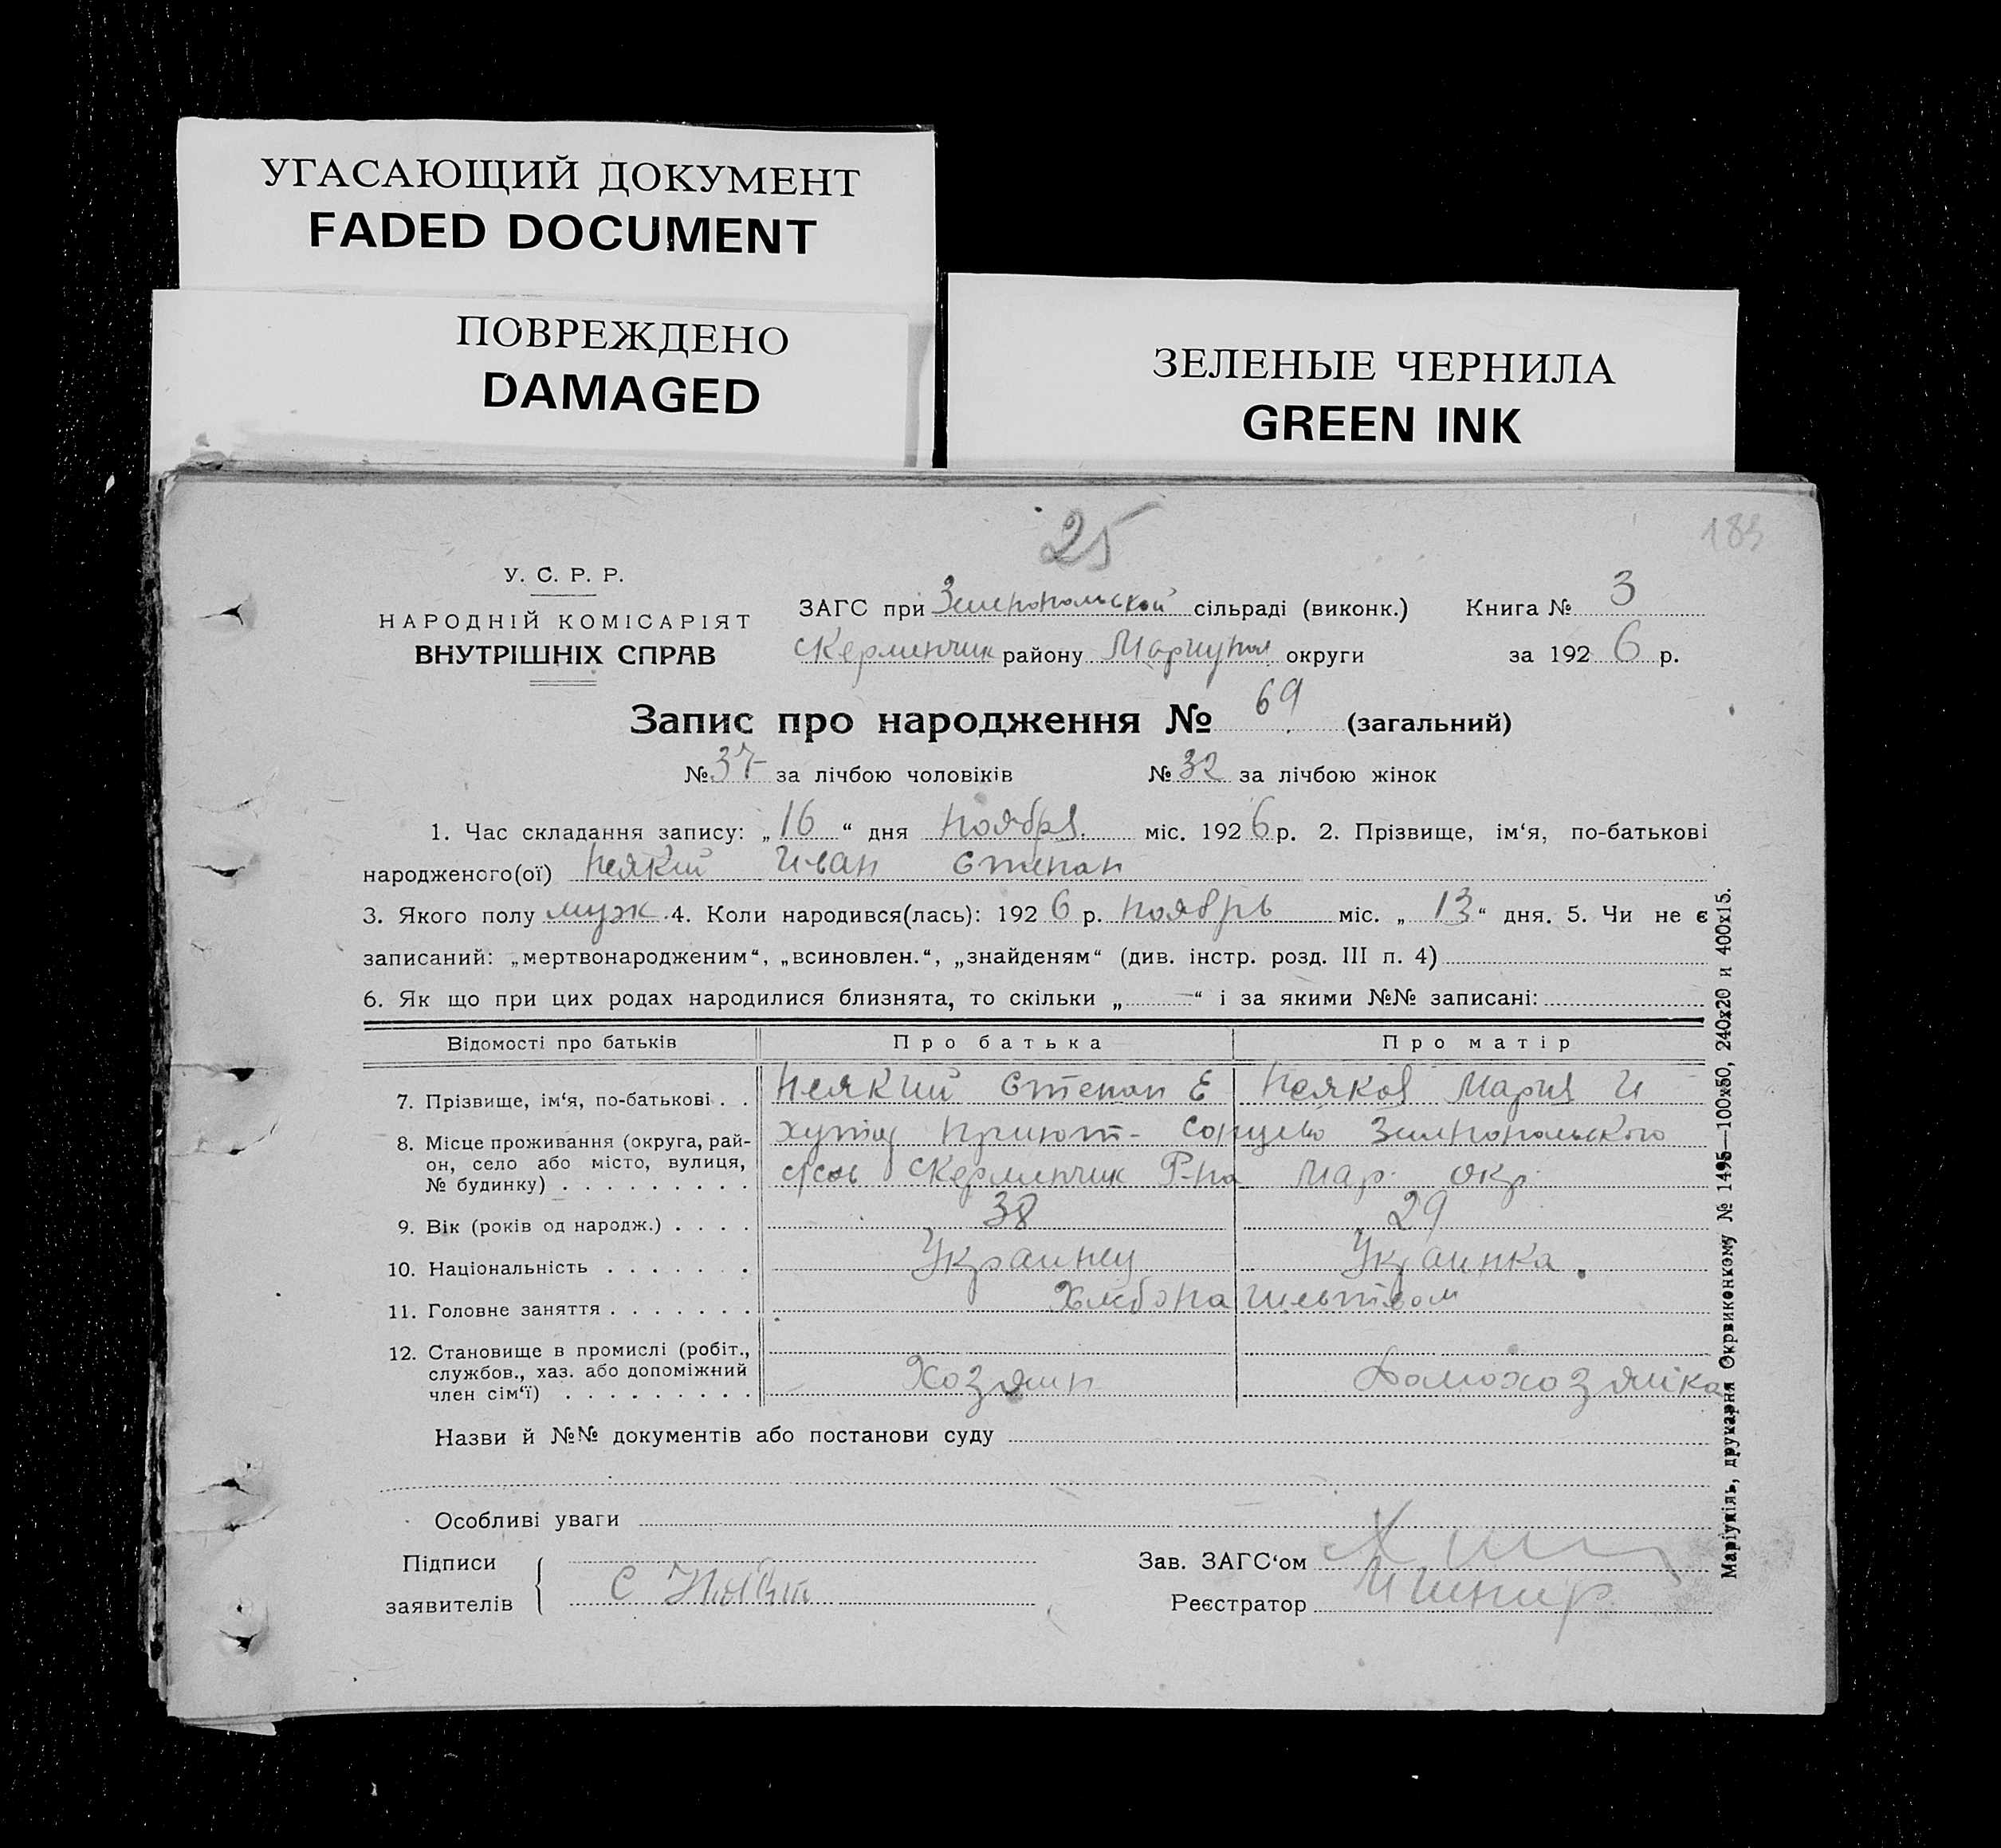 УГАСАЮЩИЙ ДОКУМЕНТ
FADED DOCUMENT
ПОВРЕЖДЕНО
DAMAGED
ЗЕЛЕНЫЕ ЧЕРНИЛА
GREEN INK
25
183
У. С. Р. Р.
НАРОДНІЙ КОМІСАРІЯТ
ВНУТРІШНІХ СПРАВ
ЗАГС при сільраді (виконк.) Книга № 3
району Мариупол округи за 192 6 р.
Запис про народження № 69 (загальний)
№ 37 за лічбою чоловіків № 32 за лічбою жінок
1. Час складання запису: „ 16 “ дня ноября міс. 192 6 р. 2. Прізвище, ім‘я, по-батькові
народженого(ої) Неякий Иван Степан
3. Якого полу муж 4. Коли народився(лась): 192 6 р. ноябрь міс. „ 13 “ дня. 5. Чи не є
записаний: „мертвонародженим“, „всиновлен.“, „знайденям“ (див. інстр. розд. III п. 4)
6. Як що при цих родах народилися близнята, то скільки „ “ і за якими №№ записані:
Відомості про батьків Про батька Про матір
7. Прізвище, ім‘я, по-батькові . . Неякий Степан Е Неякая Мария И
8. Місце проживання (округа, рай-
он, село або місто, вулиця,
№ будинку) . . . . . . . . . Р-на Мар. окр.
9. Вік (років од народж.) . . . . 38 29
10. Національність . . . . . . . Украинец Украинка.
11. Головне заняття . . . . . . .
12. Становище в промислі (робіт.,
службов., хаз. або допоміжний
член сім‘ї) . . . . . . . . . Хозяин Домохозяйка
Назви й №№ документів або постанови суду
Особливі уваги
Підписи
заявителів
Зав. ЗАГС‘ом
Реєстратор
Маріупіль, друкарня Окрвиконкому № 1495—100x50, 240x20 и 400x15.